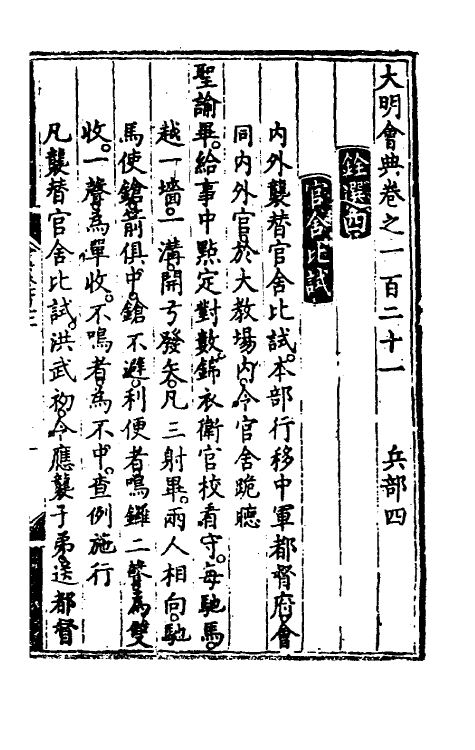 大明會典卷之一百二十一 兵部四
銓選四
官舍比試
內外襲替官舍比試。本部行移中軍都督府。會
同內外官。於大教場內。令官舍跪聽
聖諭畢。給事中點定對數。錦衣衛官校看守。每馳馬。
越一墻。一溝。開弓發矢。凡三射畢。兩人相向。馳
馬使鎗。箭俱中。鎗不避。利便者。鳴鑼二聲。為雙
收。一聲。為單收。不鳴者。為不中。查例施行
凡襲替官舍比試。洪武初。令應襲子弟。送都督